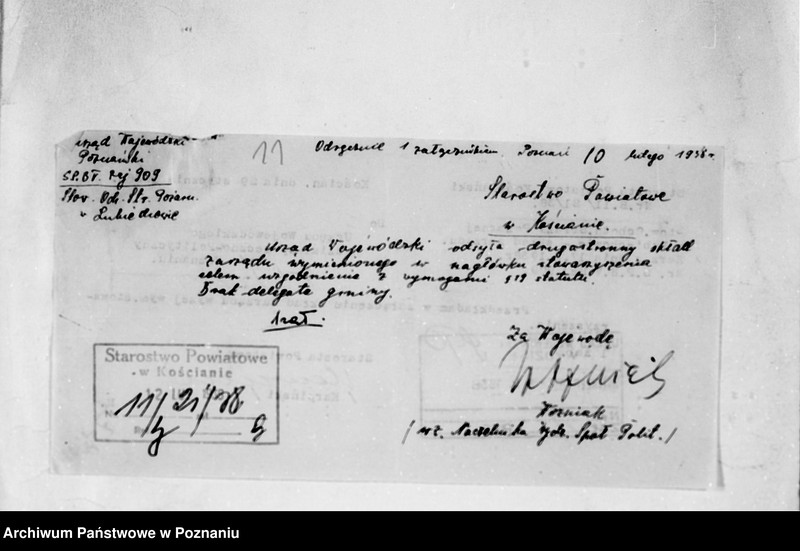 Urząd Wojewódzki
Poznański
S.P.BT. rej 909
Stow. Och. Str. Pożarn.
w Lubiechowie
11
Odręcznie 1 załącznikiem. Poznań 10 lutego 1938 r.
Starostwo Powiatowe
w Kościanie.
Urząd Wojewódzki odsyła drugostronny skład
zarządu wymienionego w nagłówku stowarzyszenia
celem uzgodnienia z wymogami § 19 statutu.
Brak delegata gminy.
1 zał.
Za Wojewodę
Woźniak
/ wz. Naczelnika Wydz. Społ. Polit. /
Starostwo Powiatowe
w Kościanie
12 II.
11/21/38
Archiwum Państwowe w Poznaniu